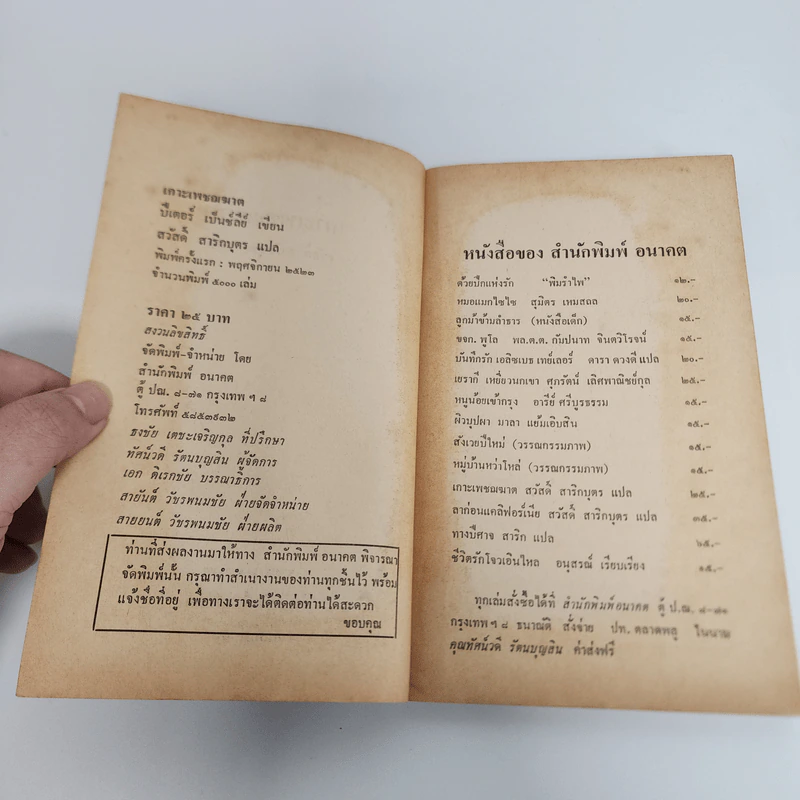 เกาะเพชฌฆาต
ปีเตอร์ เบ็นช์ลีย์ เขียน
สวัสดิ์ สาริกบุตร แปล
พิมพ์ครั้งแรก : พฤศจิกายน ๒๕๒๓
จำนวนพิมพ์ ๕๐๐๐ เล่ม
ราคา ๒๕ บาท
สงวนลิขสิทธิ์
จัดพิมพ์-จำหน่าย โดย
สำนักพิมพ์ อนาคต
ตู้ ปณ. ๘-๗๑ กรุงเทพ ฯ ๘
โทรศัพท์ ๕๘๕๓๕๓๒
ธงชัย เตชะเจริญกุล ที่ปรึกษา
ทัศน์วดี รัตนบุญสิน ผู้จัดการ
เอก ดิเรกชัย บรรณาธิการ
สายันต์ วัชรพนมชัย ฝ่ายจัดจำหน่าย
สายยนต์ วัชรพนมชัย ฝ่ายผลิต
ท่านที่ส่งผลงานมาให้ทาง สำนักพิมพ์ อนาคต พิจารณา
จัดพิมพ์นั้น กรุณาทำสำเนางานของท่านทุกชิ้นไว้ พร้อม
แจ้งชื่อที่อยู่ เพื่อทางเราจะได้ติดต่อท่านได้สะดวก
ขอบคุณ
หนังสือของ สำนักพิมพ์ อนาคต
ด้วยปีกแห่งรัก "พิมรำไพ" ๑๒.-
หมอแมกไซไซ สุมิตร เหมสถล ๒๐.-
ลูกม้าข้ามลำธาร (หนังสือเด็ก) ๑๕.-
ขจก. พูโล พล.ต.ต. กัมปนาท จินตวิโรจน์ ๑๕.-
บันทึกรัก เอลิซเบธ เทย์เลอร์ ดารา ดวงดี แปล ๒๐.-
เยรากี เหยี่ยวนกเขา ศุภรัตน์ เลิศพาณิชย์กุล ๒๕.-
หนูน้อยเข้ากรุง อารีย์ ศรีบูรธรรม ๑๕.-
ผิวบุปผา มาลา แย้มเอิบสิน ๑๕.-
สังเวยปีใหม่ (วรรณกรรมภาพ) ๑๕.-
หมู่บ้านหว่าไหล่ (วรรณกรรมภาพ) ๑๕.-
เกาะเพชฌฆาต สวัสดิ์ สาริกบุตร แปล ๒๕.-
ลาก่อนแคลิฟอร์เนีย สวัสดิ์ สาริกบุตร แปล ๓๕.-
ทางปีศาจ สาริก แปล ๖๕.-
ชีวิตรักโจวเอินไหล อนุสรณ์ เรียบเรียง ๑๕.-
ทุกเล่มสั่งซื้อได้ที่ สำนักพิมพ์อนาคต ตู้ ป.ณ. ๘-๗๑
กรุงเทพ ฯ ๘ ธนาณัติ สั่งจ่าย ปท. ตลาดพลู ในนาม
คุณทัศน์วดี รัตนบุญสิน ค่าส่งฟรี